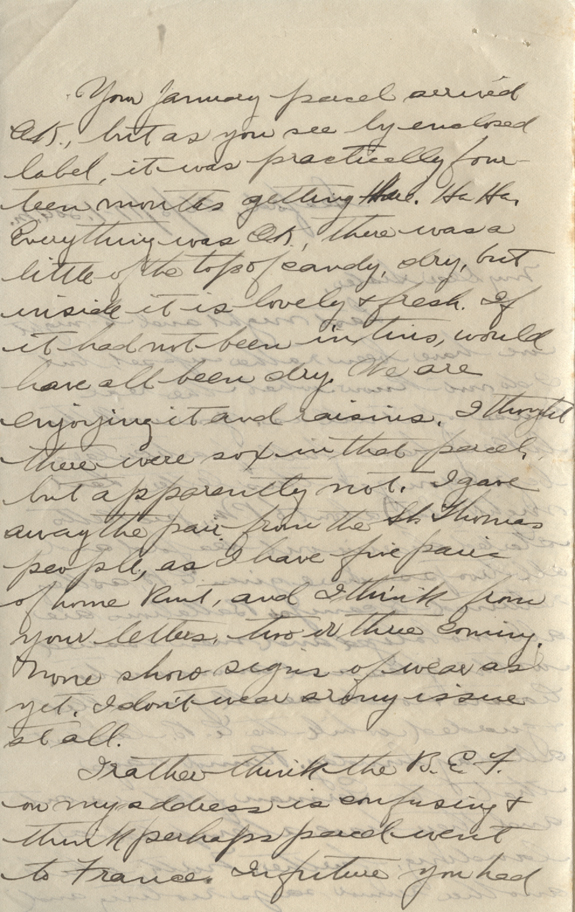 Your January parcel arrived
O.K., but as you see by enclosed
label, it was practically four-
teen months getting there. Ha Ha.
Everything was O.K., there was a
little of the top of candy, dry, but
inside it is lovely & fresh. If
it had not been in tins, would
have all been dry. We are
enjoying it and raisins. I thought
there were sox in that parcel,
but apparently not. I gave
away the pair from the St. Thomas
people, as I have five pair
of home knit, and I think from
your letters, two or three coming.
None show signs of wear as
yet. I don't wear army issue
at all.
I rather think the B.E.F.
on my address is confusing &
think perhaps parcel went
to France. In future you had